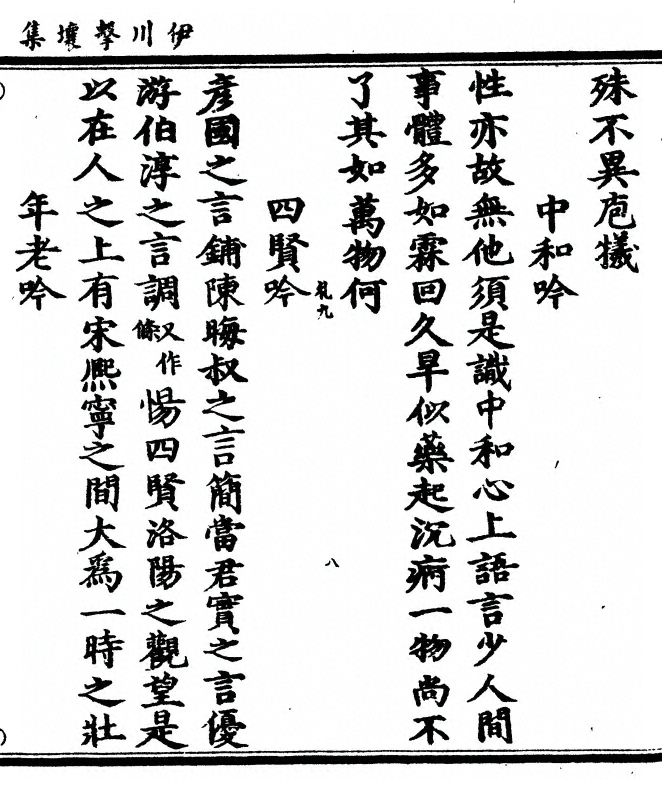 伊川擊壤集
殊不異庖犧
中和吟
性亦故無他須是識中和心上語言少人間
事體多如霖回久旱似藥起沉痾一物尚不
了其如萬物何
四賢吟
彥國之言鋪陳晦叔之言簡當君實之言優
游伯淳之言調又作條愓四賢洛陽之觀望是
以在人之上有宋熈寧之間大爲一時之壯
年老吟
八